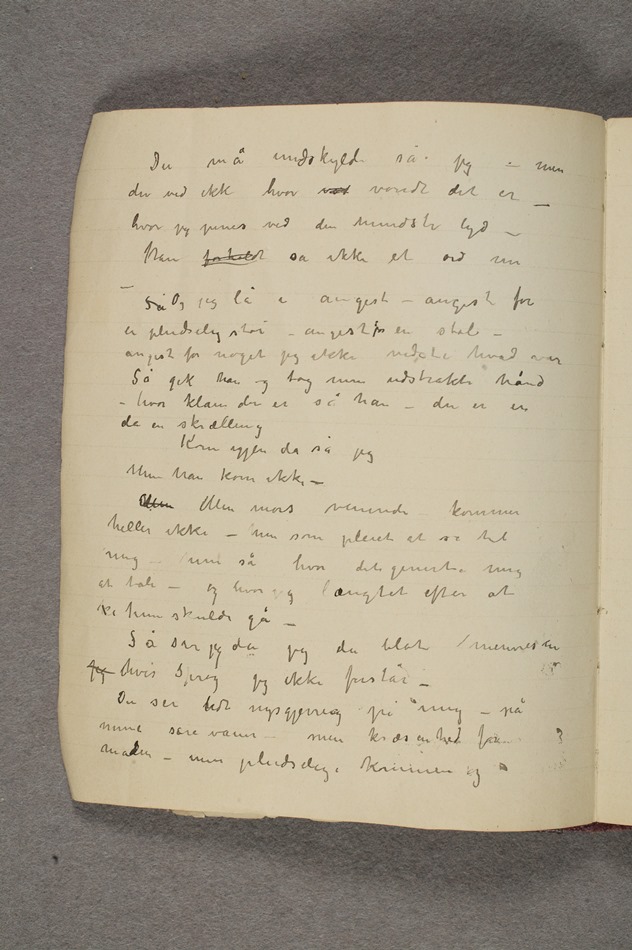 Du må undskylde så jeg – men
du ved ikk hvor vondt det er –
hvor jeg pines ved den mindste lyd –
Han forholdt sa ikke et ord mer
– Så Og jeg lå i angest – angest for
en pludselig støi – angest for en stol –
angst for noget jeg ikke vidste hvad var
Så gik han og tog min udstrakte hånd
– hvor klam du er så han – du er en
da en skrælling
Kom igjen da så jeg
Men han kom ikke –
Men Men mors veninde kommer
heller ikke – hun som pleiet at se til
mig – hvor det generte mig
at tale – og hvor jeg længtet efter at
hun skulde gå –
Så ser jeg da jeg da blot
Jeg hvis Sprog jeg ikke forstår –
De ser lidt nysgjerrig på mig – på
mine sære vaner – men
maden – men pludselig kommer og